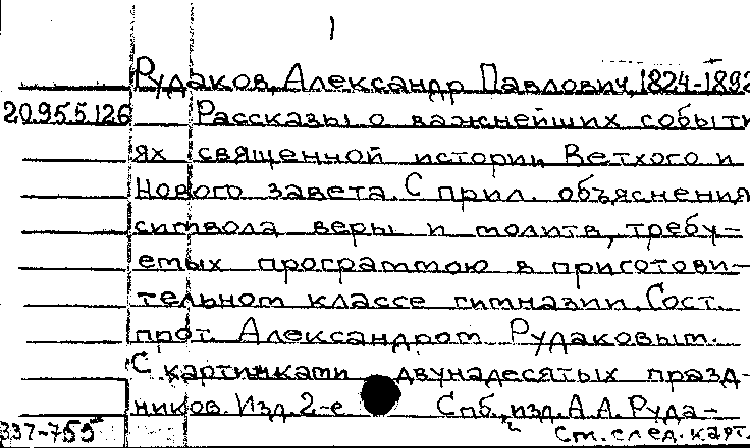 1
Рудаков, Александр Павлович, 1824-1892
20.95.5.126 Рассказы о важнейших событи
ях священной истории Ветхого и
Нового завета. С прил. объяснения
символа веры и молитв, требу-
емых программою в приготови-
тельном классе гимназии. Сост.
прот. Александром Рудаковым.
С картинками двунадесятых празд-
ников. Изд. 2-е Спб., изд. А.А. Руда-
337-755 См. след. карт